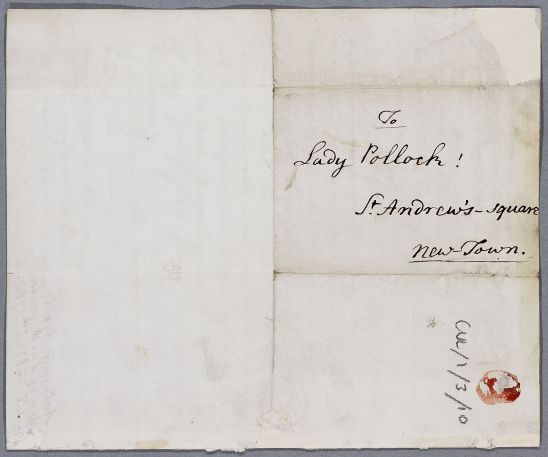 To
Lady Pollock!
St. Andrew's-square
New-Town.
Cul/1/3/10